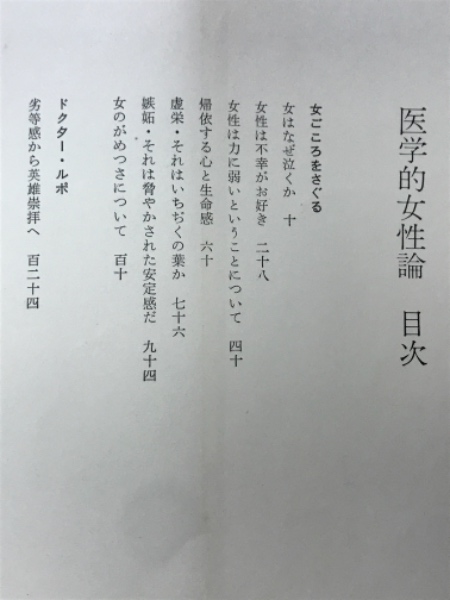 医学的女性論　目次
女ごころをさぐる
女はなぜ泣くか　十
女性は不幸がお好き　二十八
女性は力に弱いということについて　四十
帰依する心と生命感　六十
虚栄・それはいちぢくの葉か　七十六
嫉妬・それは脅やかされた安定感だ　九十四
女のがめつさについて　百十
ドクター・ルポ
劣等感から英雄崇拝へ　百二十四